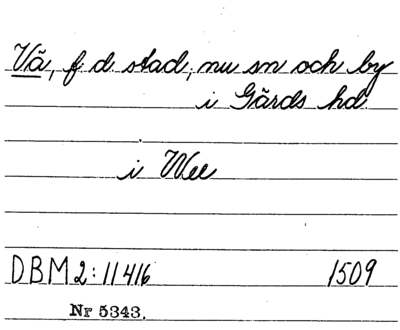 Vä, f. d. stad, nu sn och by
i Gärds hd.
i Wee
DBM 2:11416 1509
Nr 5343.